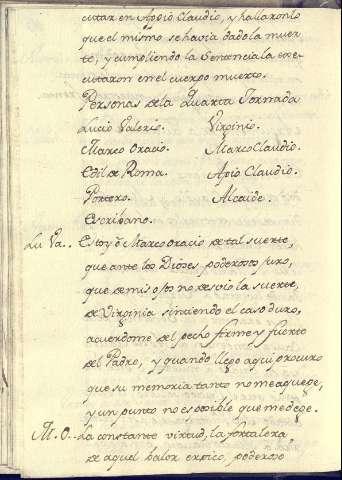 cutar en Apio Claudio, y hallaronlo
que el mismo se havia dado la muer
te, y cumpliendo la Sentencia la exe-
cutaron en el cuerpo muerto.
Personas de la Quarta Jornada
Lucio Valerio. Virginio.
Marco Oracio. Marco Claudio.
Edil de Roma. Apio Claudio.
Portero. Alcaide.
Escribano.
Lu Va.. Estoy ō Marco oracio de tal suerte,
que ante los Dioses poderosos juro,
que de mis ojos no desvio la suerte,
de Virginia sintiendo el caso duro,
acuerdome del pecho firme y fuerte
del Padre, y quando llego aqui procuro
que su memoria tanto no me aquege,
y un punto no es posible que me dege.
M. O. La constante virtud, la fortaleza,
de aquel balor eroico, poderoso